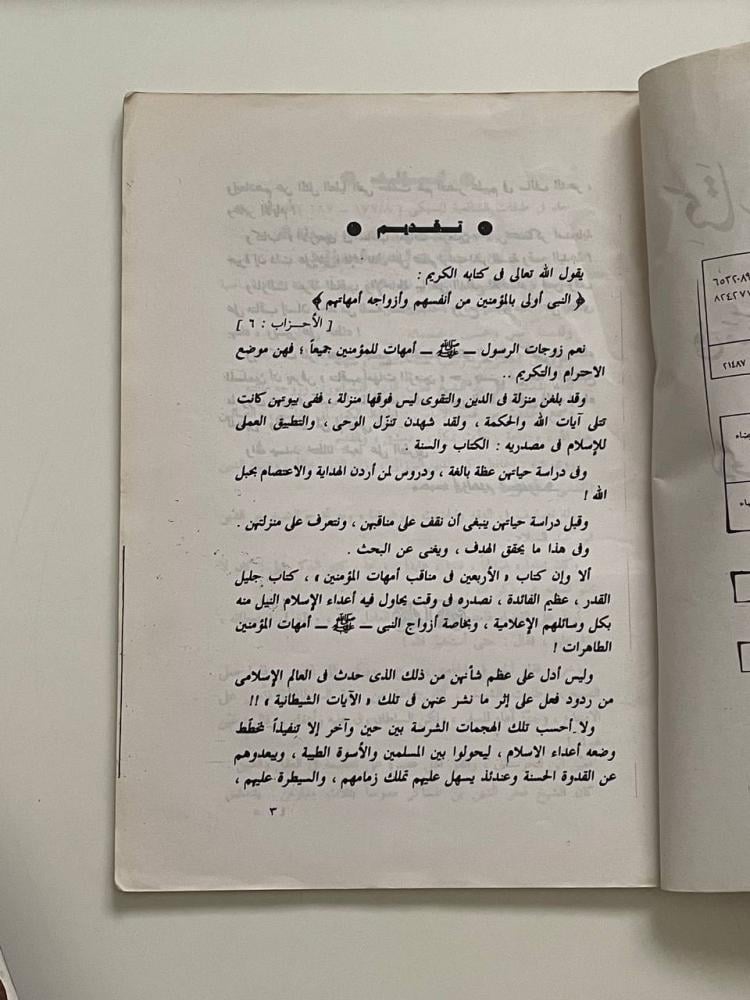 ● تـقـديـم ●
يقول الله تعالى فى كتابه الكريم :
﴿ النبى أولى بالمؤمنين من أنفسهم وأزواجه أمهاتهم ﴾
[ الأحـزاب : ٦ ]
نعم زوجات الرسول ــ ﷺ ــ أمهات للمؤمنين جميعاً ؛ فهن موضع
الاحترام والتكريم ..
وقد بلغن منزلة فى الدين والتقوى ليس فوقها منزلة ، ففى بيوتهن كانت
تتلى آيات الله والحكمة ، ولقد شهدن تنزّل الوحى ، والتطبيق العملى
للإسلام فى مصدريه : الكتاب والسنة .
وفى دراسة حياتهن عظة بالغة ، ودروس لمن أردن الهداية والاعتصام بحبل
الله !
وقبل دراسة حياتهن ينبغى أن نقف على مناقبهن ، ونتعرف على منزلتهن .
وفى هذا ما يحقق الهدف ، ويغنى عن البحث .
ألا وإن كتاب « الأربعين فى مناقب أمهات المؤمنين » ، كتاب جليل
القدر ، عظيم الفائدة ، نصدره فى وقت يحاول فيه أعداء الإسلام النيل منه
بكل وسائلهم الإعلامية ، وبخاصة أزواج النبى ــ ﷺ ــ أمهات المؤمنين
الطاهرات !
وليس أدل على عظم شأنهن من ذلك الذى حدث فى العالم الإسلامى
من ردود فعل على إثر ما نشر عنهن فى تلك « الآيات الشيطانية » !!
ولا أحسب تلك الهجمات الشرسة بين حين وآخر إلا تنفيذاً لمخطّط
وضعه أعداء الاسلام ، ليحولوا بين المسلمين والأسوة الطيبة ، ويبعدوهم
عن القدوة الحسنة وعندئذ يسهل عليهم تملك زمامهم ، والسيطرة عليهم ،
٣
٢١٤٨٧